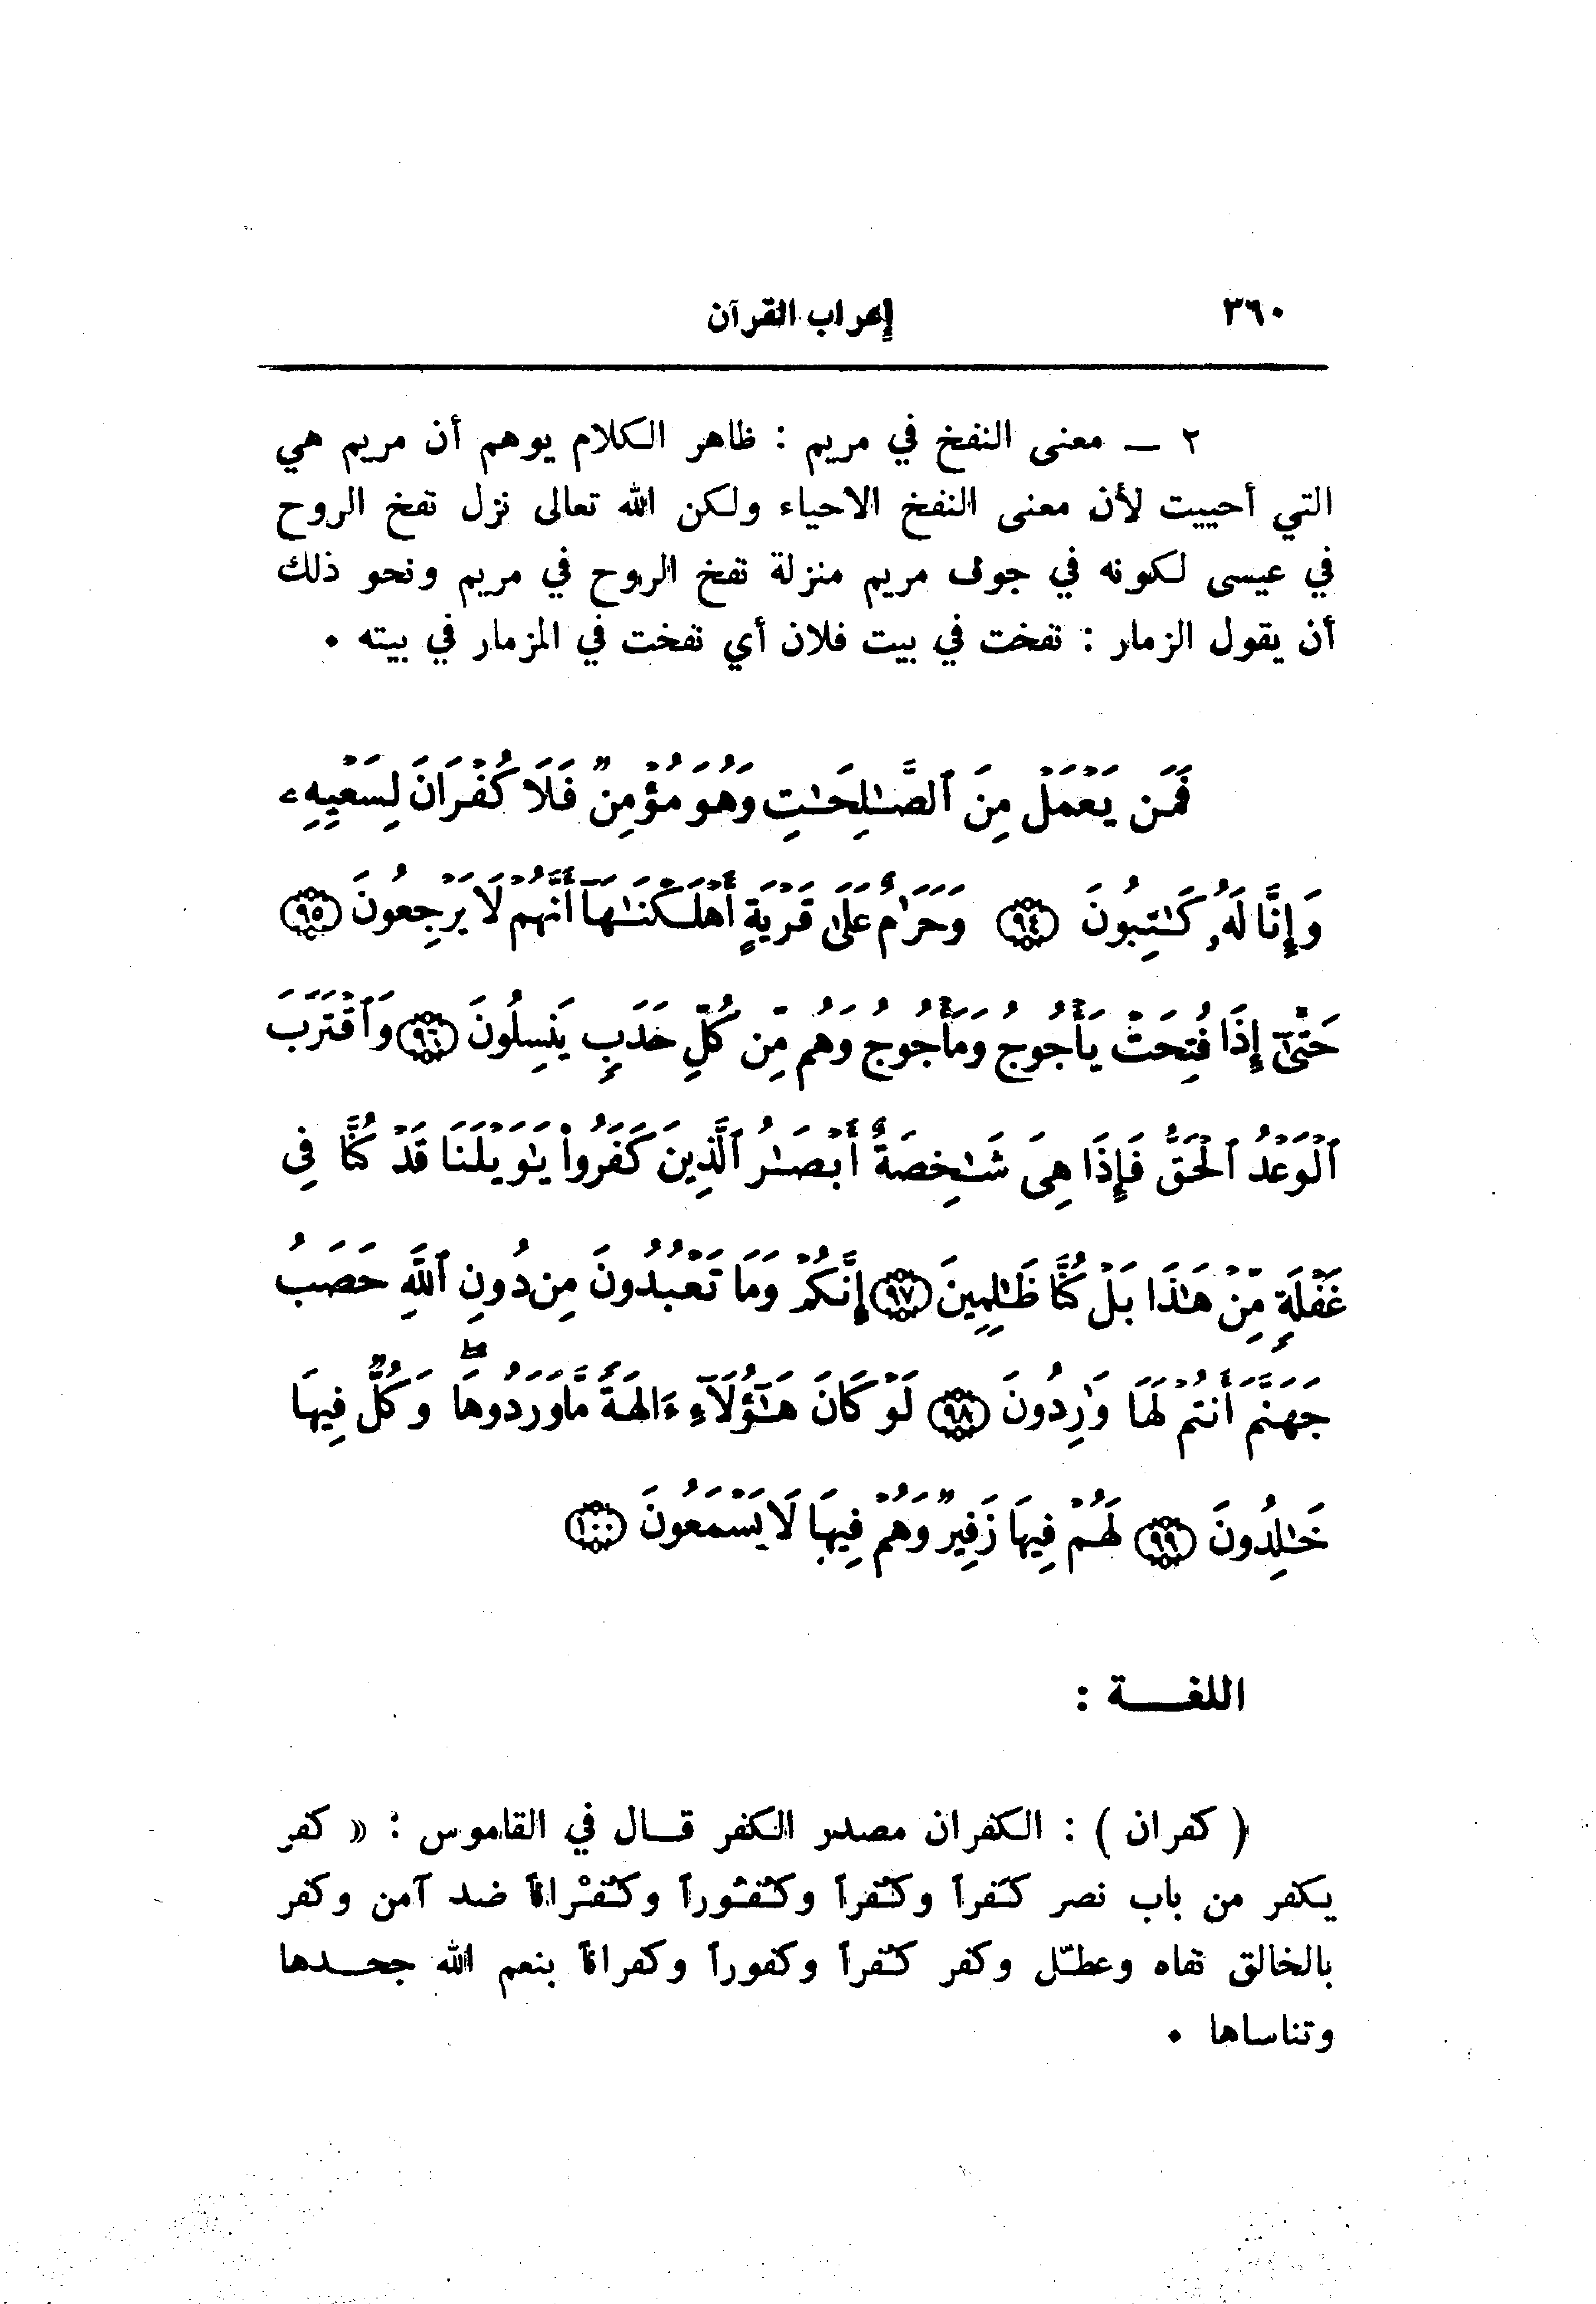 ٣٦٠
إعراب القرآن
٢ ــ معنى النفخ في مريم : ظاهر الكلام يوهم أن مريم هي
التي أحييت لأن معنى النفخ الاحياء ولكن الله تعالى نزل نفخ الروح
في عيسى لكونه في جوف مريم منزلة نفخ الروح في مريم ونحو ذلك
أن يقول الزمار : نفخت في بيت فلان أي نفخت في المزمار في بيته ٠
فَمَن يَعْمَلْ مِنَ ٱلصَّـٰلِحَـٰتِ وَهُوَ مُؤْمِنٌ فَلَا كُفْرَانَ لِسَعْيِهِۦ
وَإِنَّا لَهُۥ كَـٰتِبُونَ ﴿٩٤﴾ وَحَرَٰمٌ عَلَىٰ قَرْيَةٍ أَهْلَكْنَـٰهَآ أَنَّهُمْ لَا يَرْجِعُونَ ﴿٩٥﴾
حَتَّىٰٓ إِذَا فُتِحَتْ يَأْجُوجُ وَمَأْجُوجُ وَهُم مِّن كُلِّ حَدَبٍ يَنسِلُونَ ﴿٩٦﴾ وَٱقْتَرَبَ
ٱلْوَعْدُ ٱلْحَقُّ فَإِذَا هِىَ شَـٰخِصَةٌ أَبْصَـٰرُ ٱلَّذِينَ كَفَرُوا۟ يَـٰوَيْلَنَا قَدْ كُنَّا فِى
غَفْلَةٍ مِّنْ هَـٰذَا بَلْ كُنَّا ظَـٰلِمِينَ ﴿٩٧﴾ إِنَّكُمْ وَمَا تَعْبُدُونَ مِن دُونِ ٱللَّهِ حَصَبُ
جَهَنَّمَ أَنتُمْ لَهَا وَٰرِدُونَ ﴿٩٨﴾ لَوْ كَانَ هَـٰٓؤُلَآءِ ءَالِهَةً مَّا وَرَدُوهَا ۖ وَكُلٌّ فِيهَا
خَـٰلِدُونَ ﴿٩٩﴾ لَهُمْ فِيهَا زَفِيرٌ وَهُمْ فِيهَا لَا يَسْمَعُونَ ﴿١٠٠﴾
اللغـــة :
( كفران ) : الكفران مصدر الكفر قـال في القاموس : « كفر
يكفر من باب نصر كَفراً وكُفراً وكُفُوراً وكُفْراناً ضد آمن وكفر
بالخالق نفاه وعطّل وكفر كُفراً وكفوراً وكفراناً بنعم الله جحـدها
وتناساها ٠